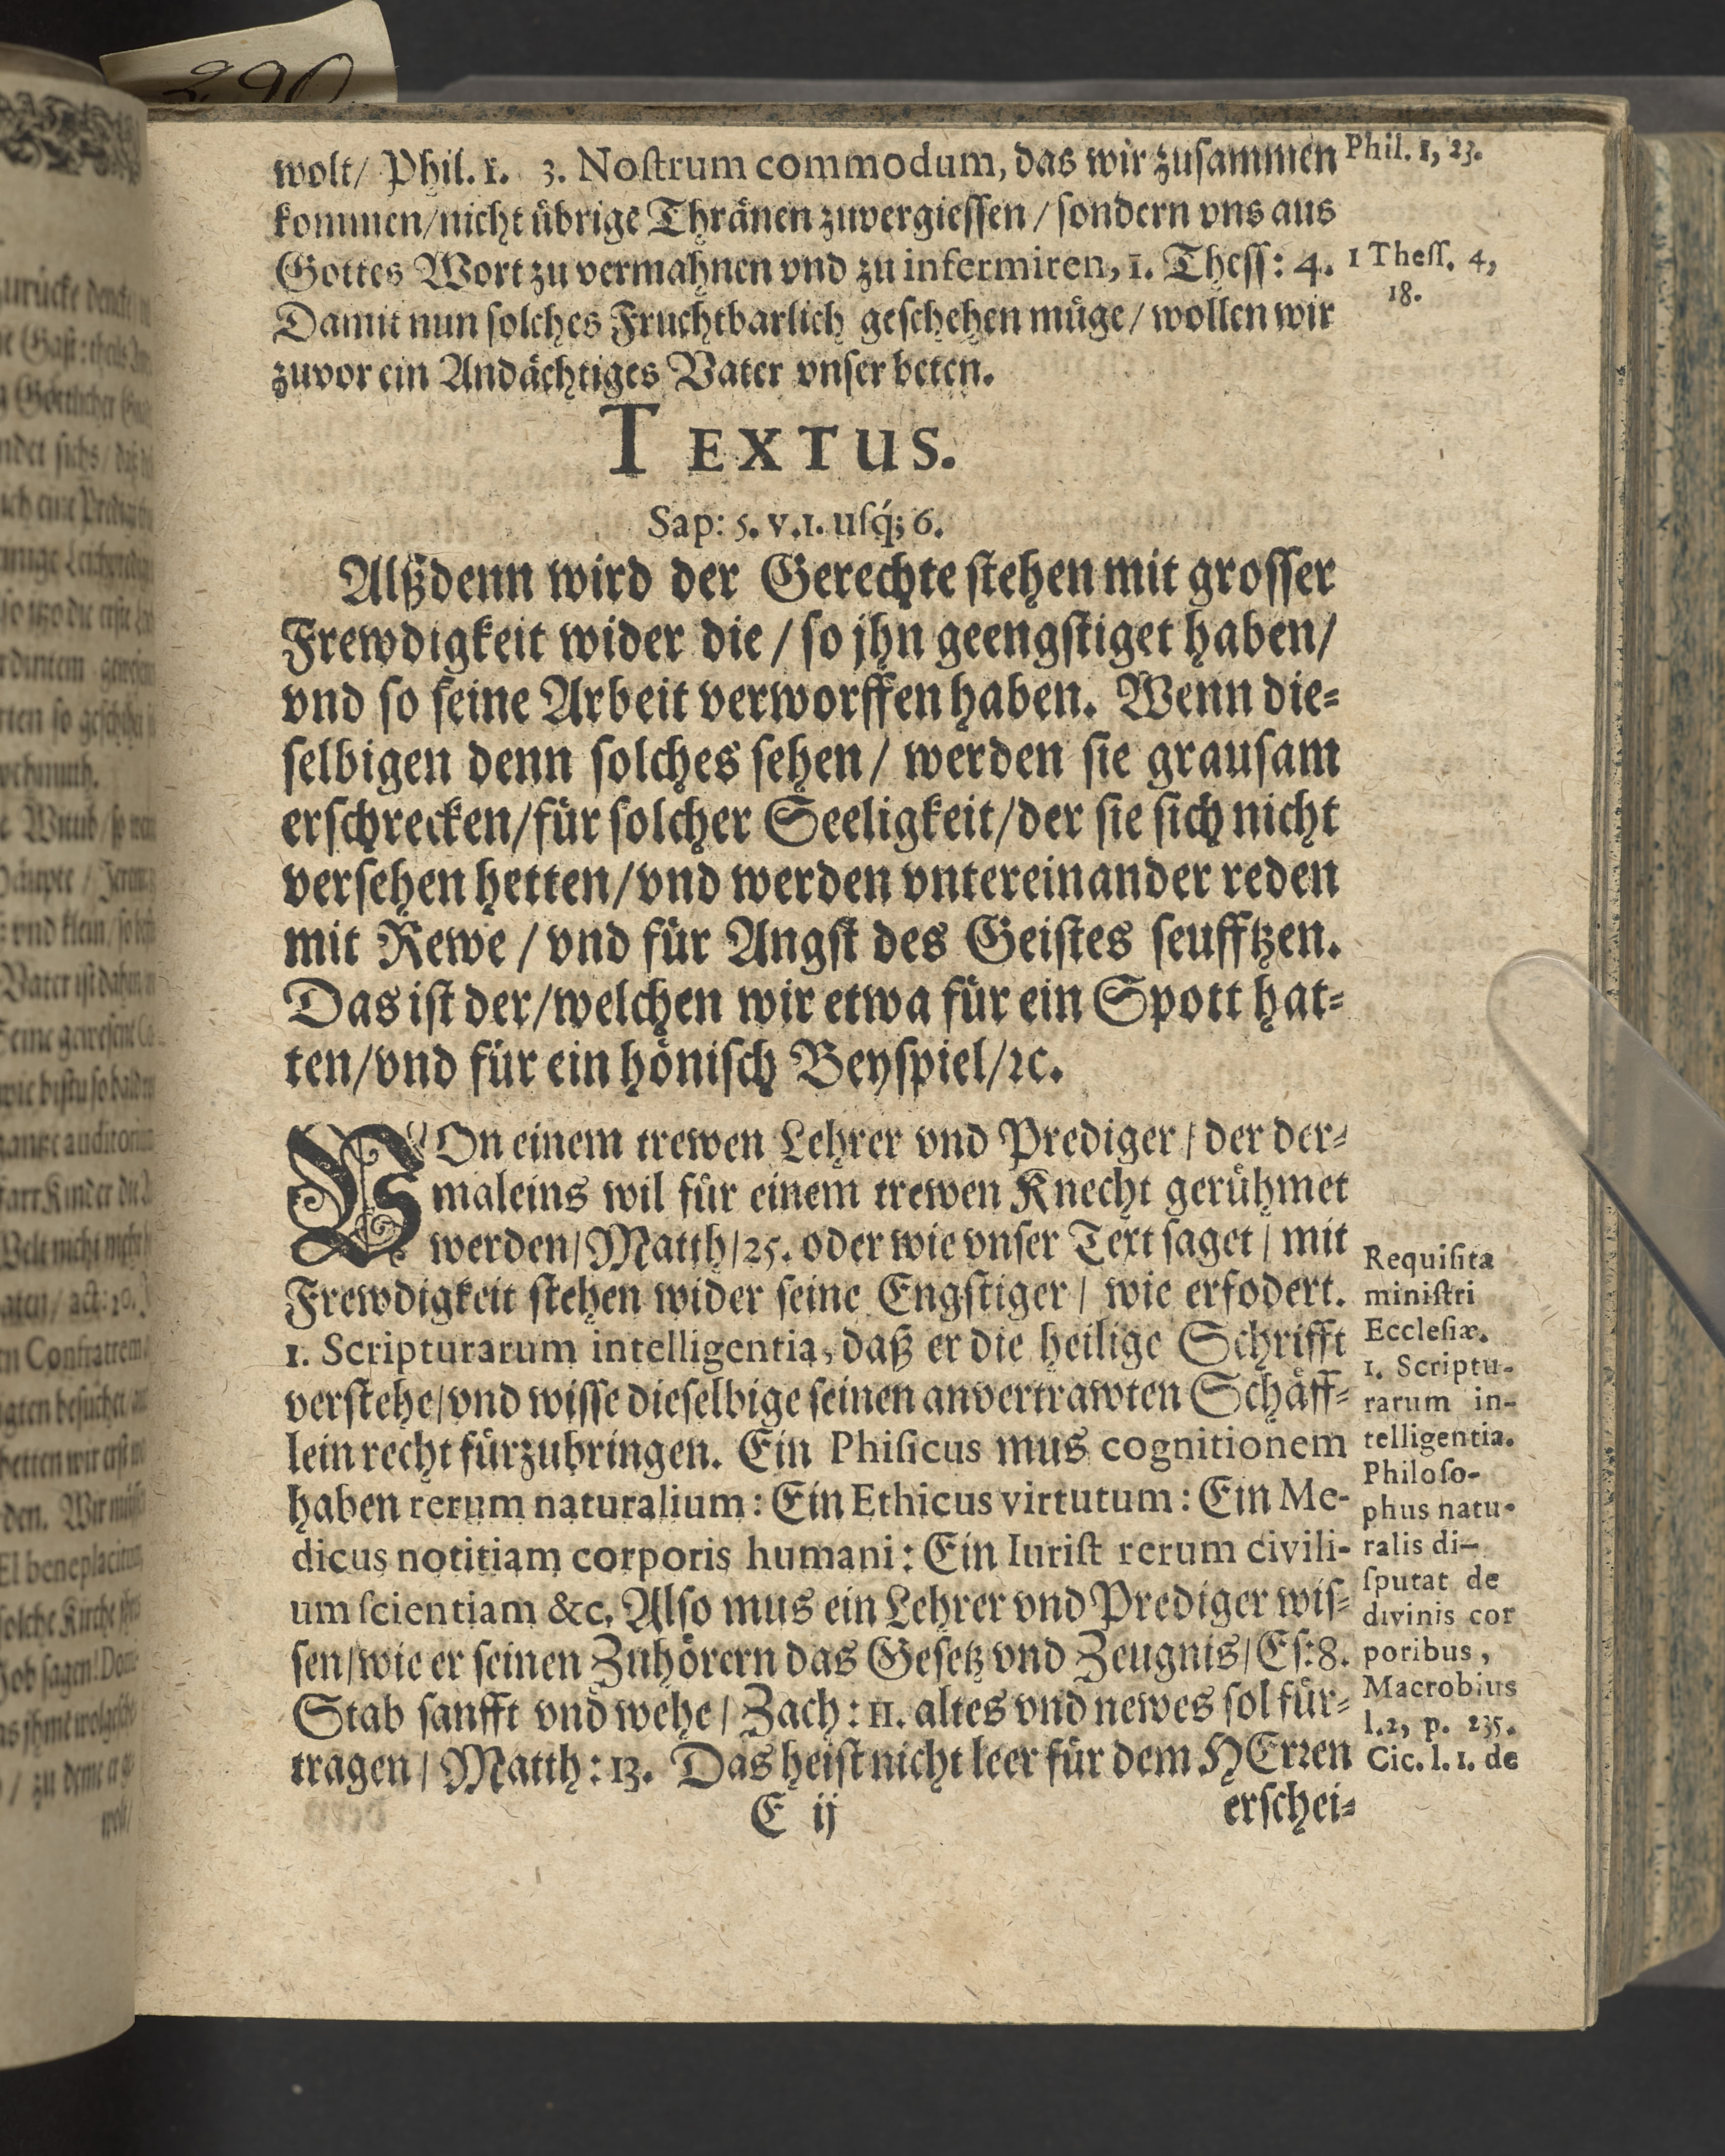 290
wolt/ Phil. 1. 3. Noſtrum commodum, das wir zuſammen
kommen/nicht übrige Thränen zuvergieſſen/ ſondern vns aus
Gottes Wort zu vermahnen vnd zu infermiren, 1. Theſſ: 4.
Damit nun ſolches Fruchtbarlich geſchehen müge/ wollen wir
zuvor ein Andächtiges Vater vnſer beten.
Phil. 1, 23.
1 Theſſ. 4,
18.
TEXTUS.
Sap: 5. v.1. uſq́; 6.
Alßdenn wird der Gerechte ſtehen mit groſſer
Frewdigkeit wider die / ſo jhn geengſtiget haben/
vnd ſo ſeine Arbeit verworffen haben. Wenn die-
ſelbigen denn ſolches ſehen/ werden ſie grauſam
erſchrecken/für ſolcher Seeligkeit/der ſie ſich nicht
verſehen hetten/vnd werden vntereinander reden
mit Rewe / vnd für Angſt des Geiſtes ſeufftzen.
Das iſt der/welchen wir etwa für ein Spott hat-
ten/vnd für ein hönisch Beyſpiel/ꝛc.
VOn einem trewen Lehrer vnd Prediger/ der der-
maleins wil für einem trewen Knecht gerühmet
werden/Matth/25. oder wie vnſer Text ſaget/ mit
Frewdigkeit ſtehen wider ſeine Engſtiger/ wie erfodert.
1. Scripturarum intelligentia, daß er die heilige Schrifft
verſtehe/vnd wiſſe dieſelbige ſeinen anvertrawten Schäff-
lein recht fürzubringen. Ein Phiſicus mus cognitionem
haben rerum naturalium: Ein Ethicus virtutum: Ein Me-
dicus notitiam corporis humani: Ein Iuriſt rerum civili-
um ſcientiam &c. Alſo mus ein Lehrer vnd Prediger wiſ-
ſen/wie er ſeinen Zuhörern das Geſetz vnd Zeugnis/Eſ:8.
Stab ſanfft vnd wehe/ Zach: 11. altes vnd newes ſol für-
tragen/ Matth: 13. Das heiſt nicht leer für dem HErꝛen
Requiſita
miniſtri
Eccleſiæ.
1. Scriptu-
rarum in-
telligentia.
Philoſo-
phus natu-
ralis di-
ſputat de
divinis cor
poribus,
Macrobius
l.2, p. 235.
Cic. l. 1. de
E ij
erſchei-